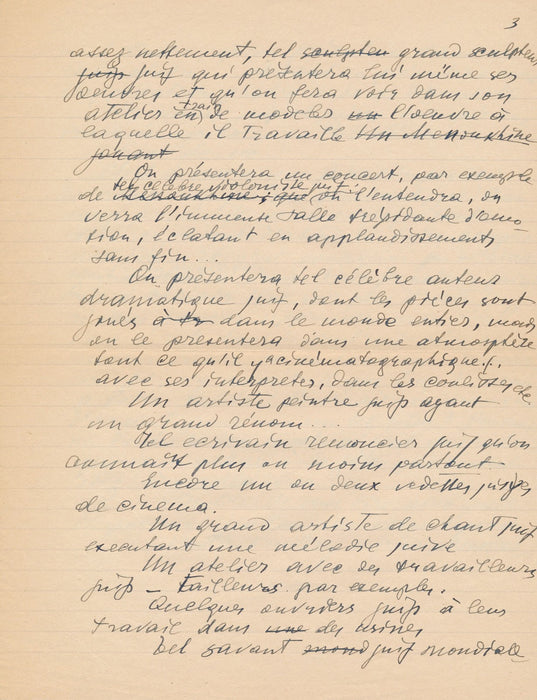 3
assez nettement, tel sculpteu grand sculpteur
juif juif qui présentera lui même ses
oeuvres et qu'on fera voir dans son
atelier en train de modeler un l'oeuvre à
laquelle il travaille Un Menouhine
jouant
On présentera un concert, par exemple
tel célèbre violoniste juif
de que où l'entendra, on
verra l'immense salle trépidante d'émo-
tion, éclatant en applaudissements
sans fin...
On présentera tel célèbre auteur
dramatique juif, dont les pièces sont
joués dans le monde entier, mais
on le présentera dans une atmosphère
tout ce qu'il y a cinématographique :
avec ses interprètes, dans les coulisses etc.
Un artiste peintre juif ayant
un grand renom...
Tel ecrivain romancier juif qu'on
connaît plus ou moins partout
Encore un ou deux vedettes juives
de cinema.
Un grand artiste de chant juif
executant une mélodie juive
Un atelier avec des travailleurs
juifs - tailleurs par exemple.
Quelques ouvriers juifs à leur
travail dans une des usines
Tel savant mond juif mondiale